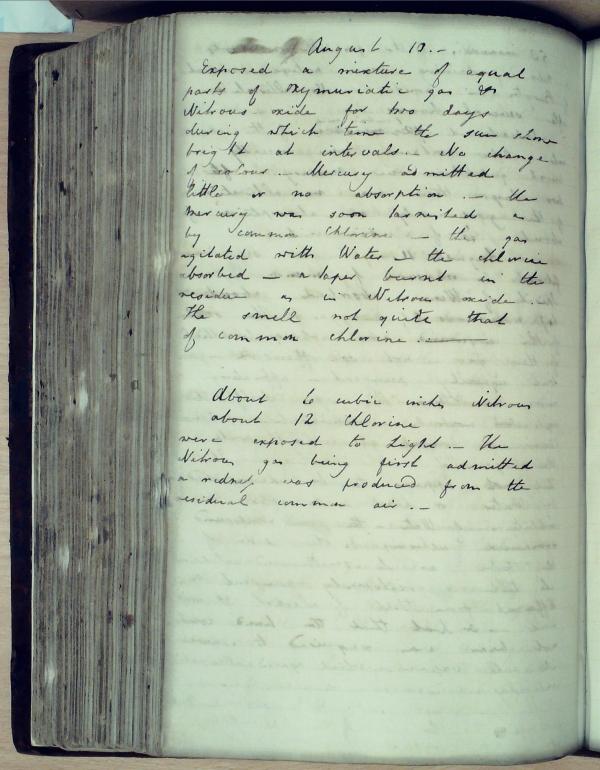 August 10.-
Exposed a mixture of equal
parts of oxymuriatic gas &
Nitrous oxide for two days
during which time the sun shone
bright at intervals. No change
of colour. - Mercury admitted
little or no absorption. - the
mercury was soon tarnished as
by common Chlorine - the gas
agitated with Water - the chlorine
absorbed - a taper burnt in the
residue as in Nitrous oxide.
The smell not quite that
of common chlorine. -
About 6 cubic inches Nitrous
about 12 Chlorine
were exposed to Light. - The
Nitrous gas being first admitted
a redness was produced from the
residual common air. -